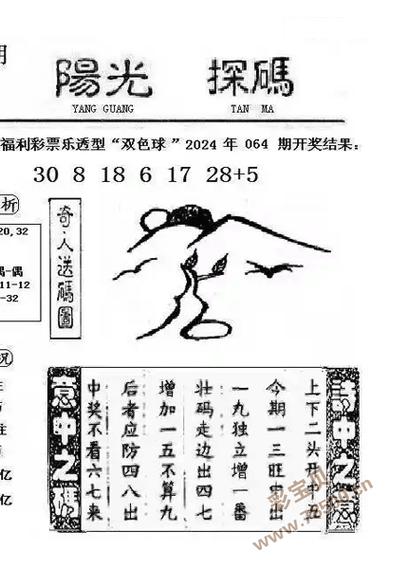 期
陽光 探碼
YANG GUANG TAN MA
福利彩票乐透型“双色球”2024 年 064 期开奖结果:
30 8 18 6 17 28+5
析
20,32
偶-偶
11-12
-32
奇人送碼圖
况
住
亿
亿
意中之碼
诗中之
上下二头开中五
今期一三旺中出
一九独立增一番
壮码走边出四七
增加一五不算九
后者应防四八出
中奖不看六七来
彩宝贝